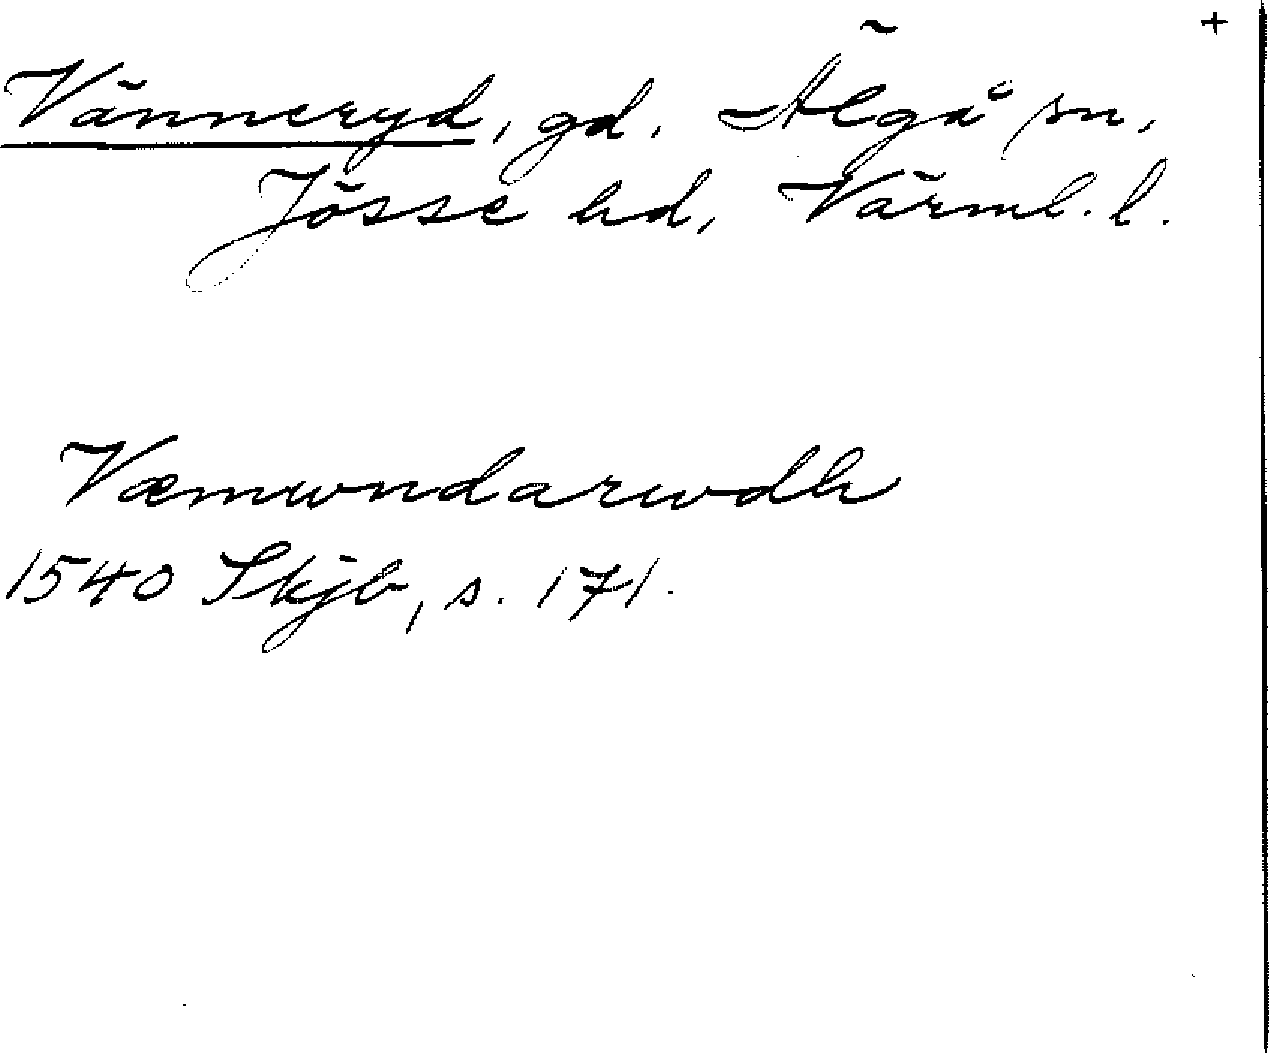 +
Vänneryd, gd. Älgå sn,
Jösse hd, Värml. l.
Væmwndarwdh
1540 Skjb, s. 171.